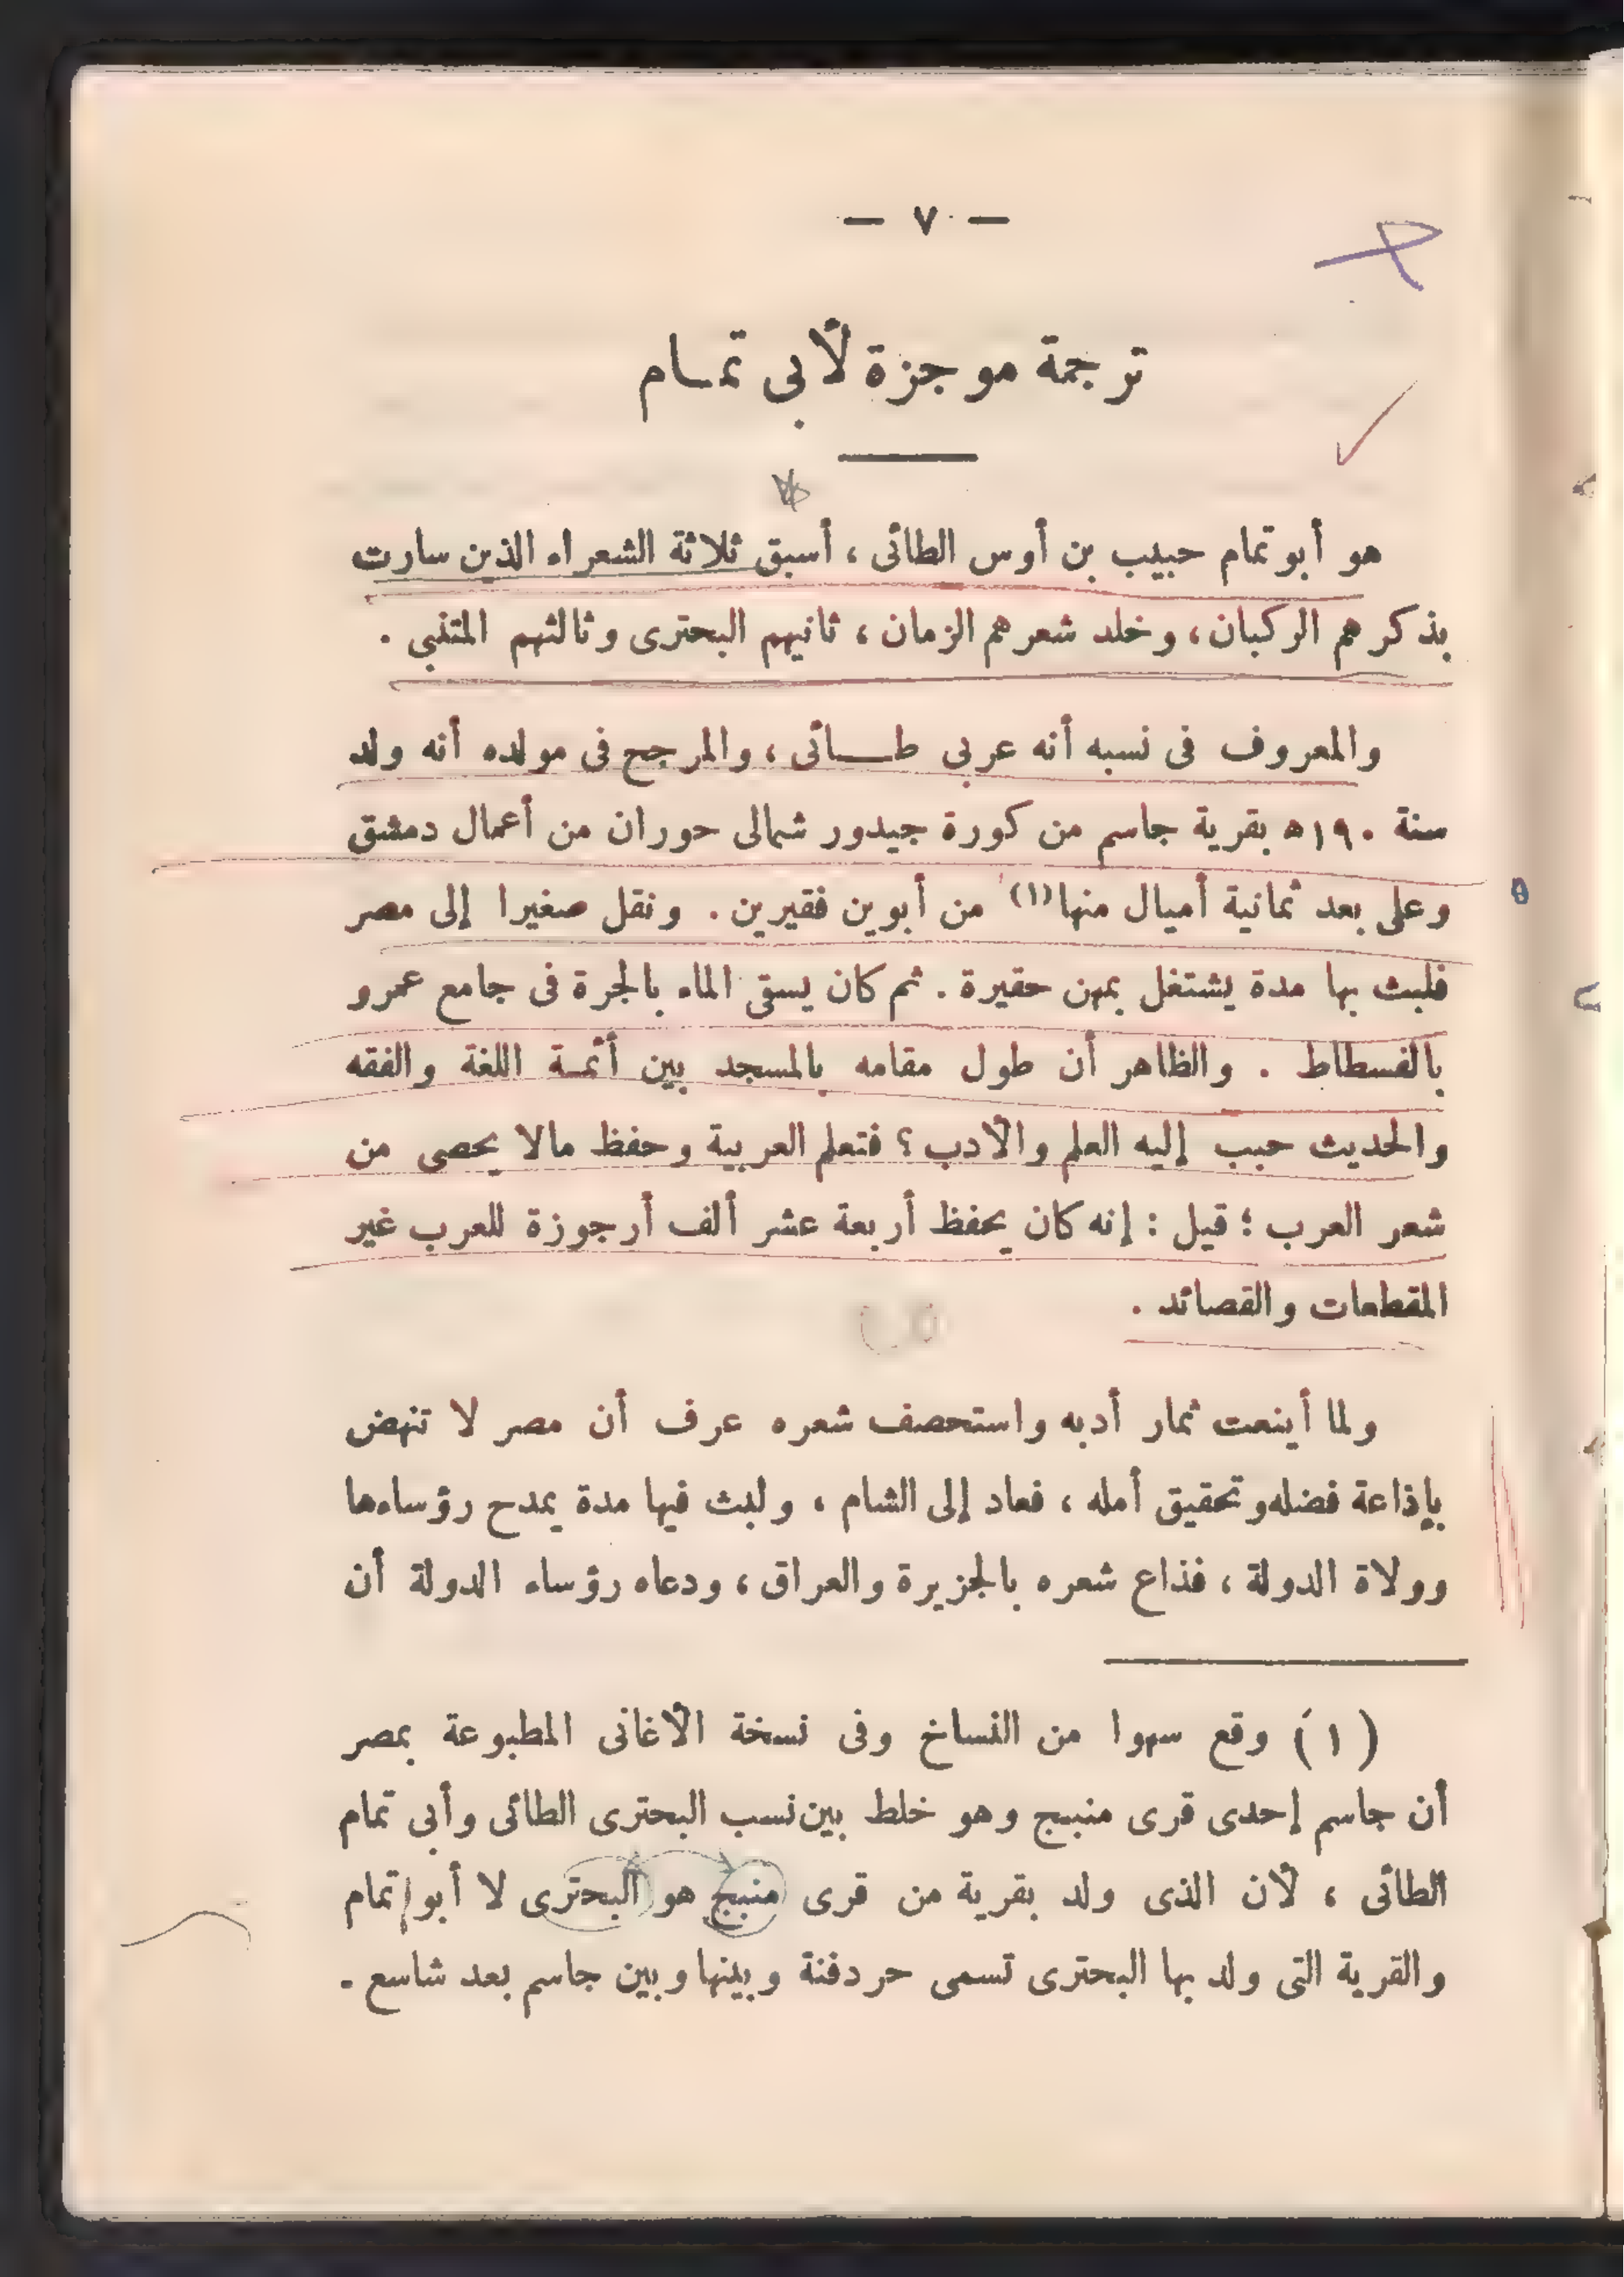 — ٧ —
ترجمة موجزة لأبى تمـام
هو أبو تمام حبيب بن أوس الطائى ، أسبق ثلاثة الشعراء الذين سارت
بذكرهم الركبان، وخلد شعرهم الزمان ، ثانيهم البحترى وثالثهم المتنبى .
والمعروف فى نسبه أنه عربى طـــائى ، والمرجح فى مولده أنه ولد
سنة ١٩٠ه بقرية جاسم من كورة جيدور شمالى حوران من أعمال دمشق
وعلى بعد ثمانية أميال منها (١) من أبوين فقيرين . ونقل صغيرا إلى مصر
فلبث بها مدة يشتغل بمهن حقيرة . ثم كان يسقى الماء بالجرة فى جامع عمرو
بالفسطاط . والظاهر أن طول مقامه بالمسجد بين أئمـة اللغة والفقه
والحديث حبب إليه العلم والأدب ؟ فتعلم العربية وحفظ مالا يحصى من
شعر العرب ؛ قيل : إنه كان يحفظ أربعة عشر ألف أرجوزة للعرب غير
المقطعات والقصائد .
ولما أينعت ثمار أدبه واستحصف شعره عرف أن مصر لا تنهض
بإذاعة فضله وتحقيق أمله ، فعاد إلى الشام ، ولبث فيها مدة يمدح رؤساءها
وولاة الدولة ، فذاع شعره بالجزيرة والعراق ، ودعاه رؤساء الدولة أن
(١) وقع سهوا من النساخ وفى نسخة الأغانى المطبوعة بمصر
أن جاسم إحدى قرى منبج وهو خلط بين نسب البحترى الطائى وأبى تمام
الطائى ، لأن الذى ولد بقرية من قرى منبج هو البحترى لا أبو تمام
والقرية التى ولد بها البحترى تسمى حردفنة وبينها وبين جاسم بعد شاسع .